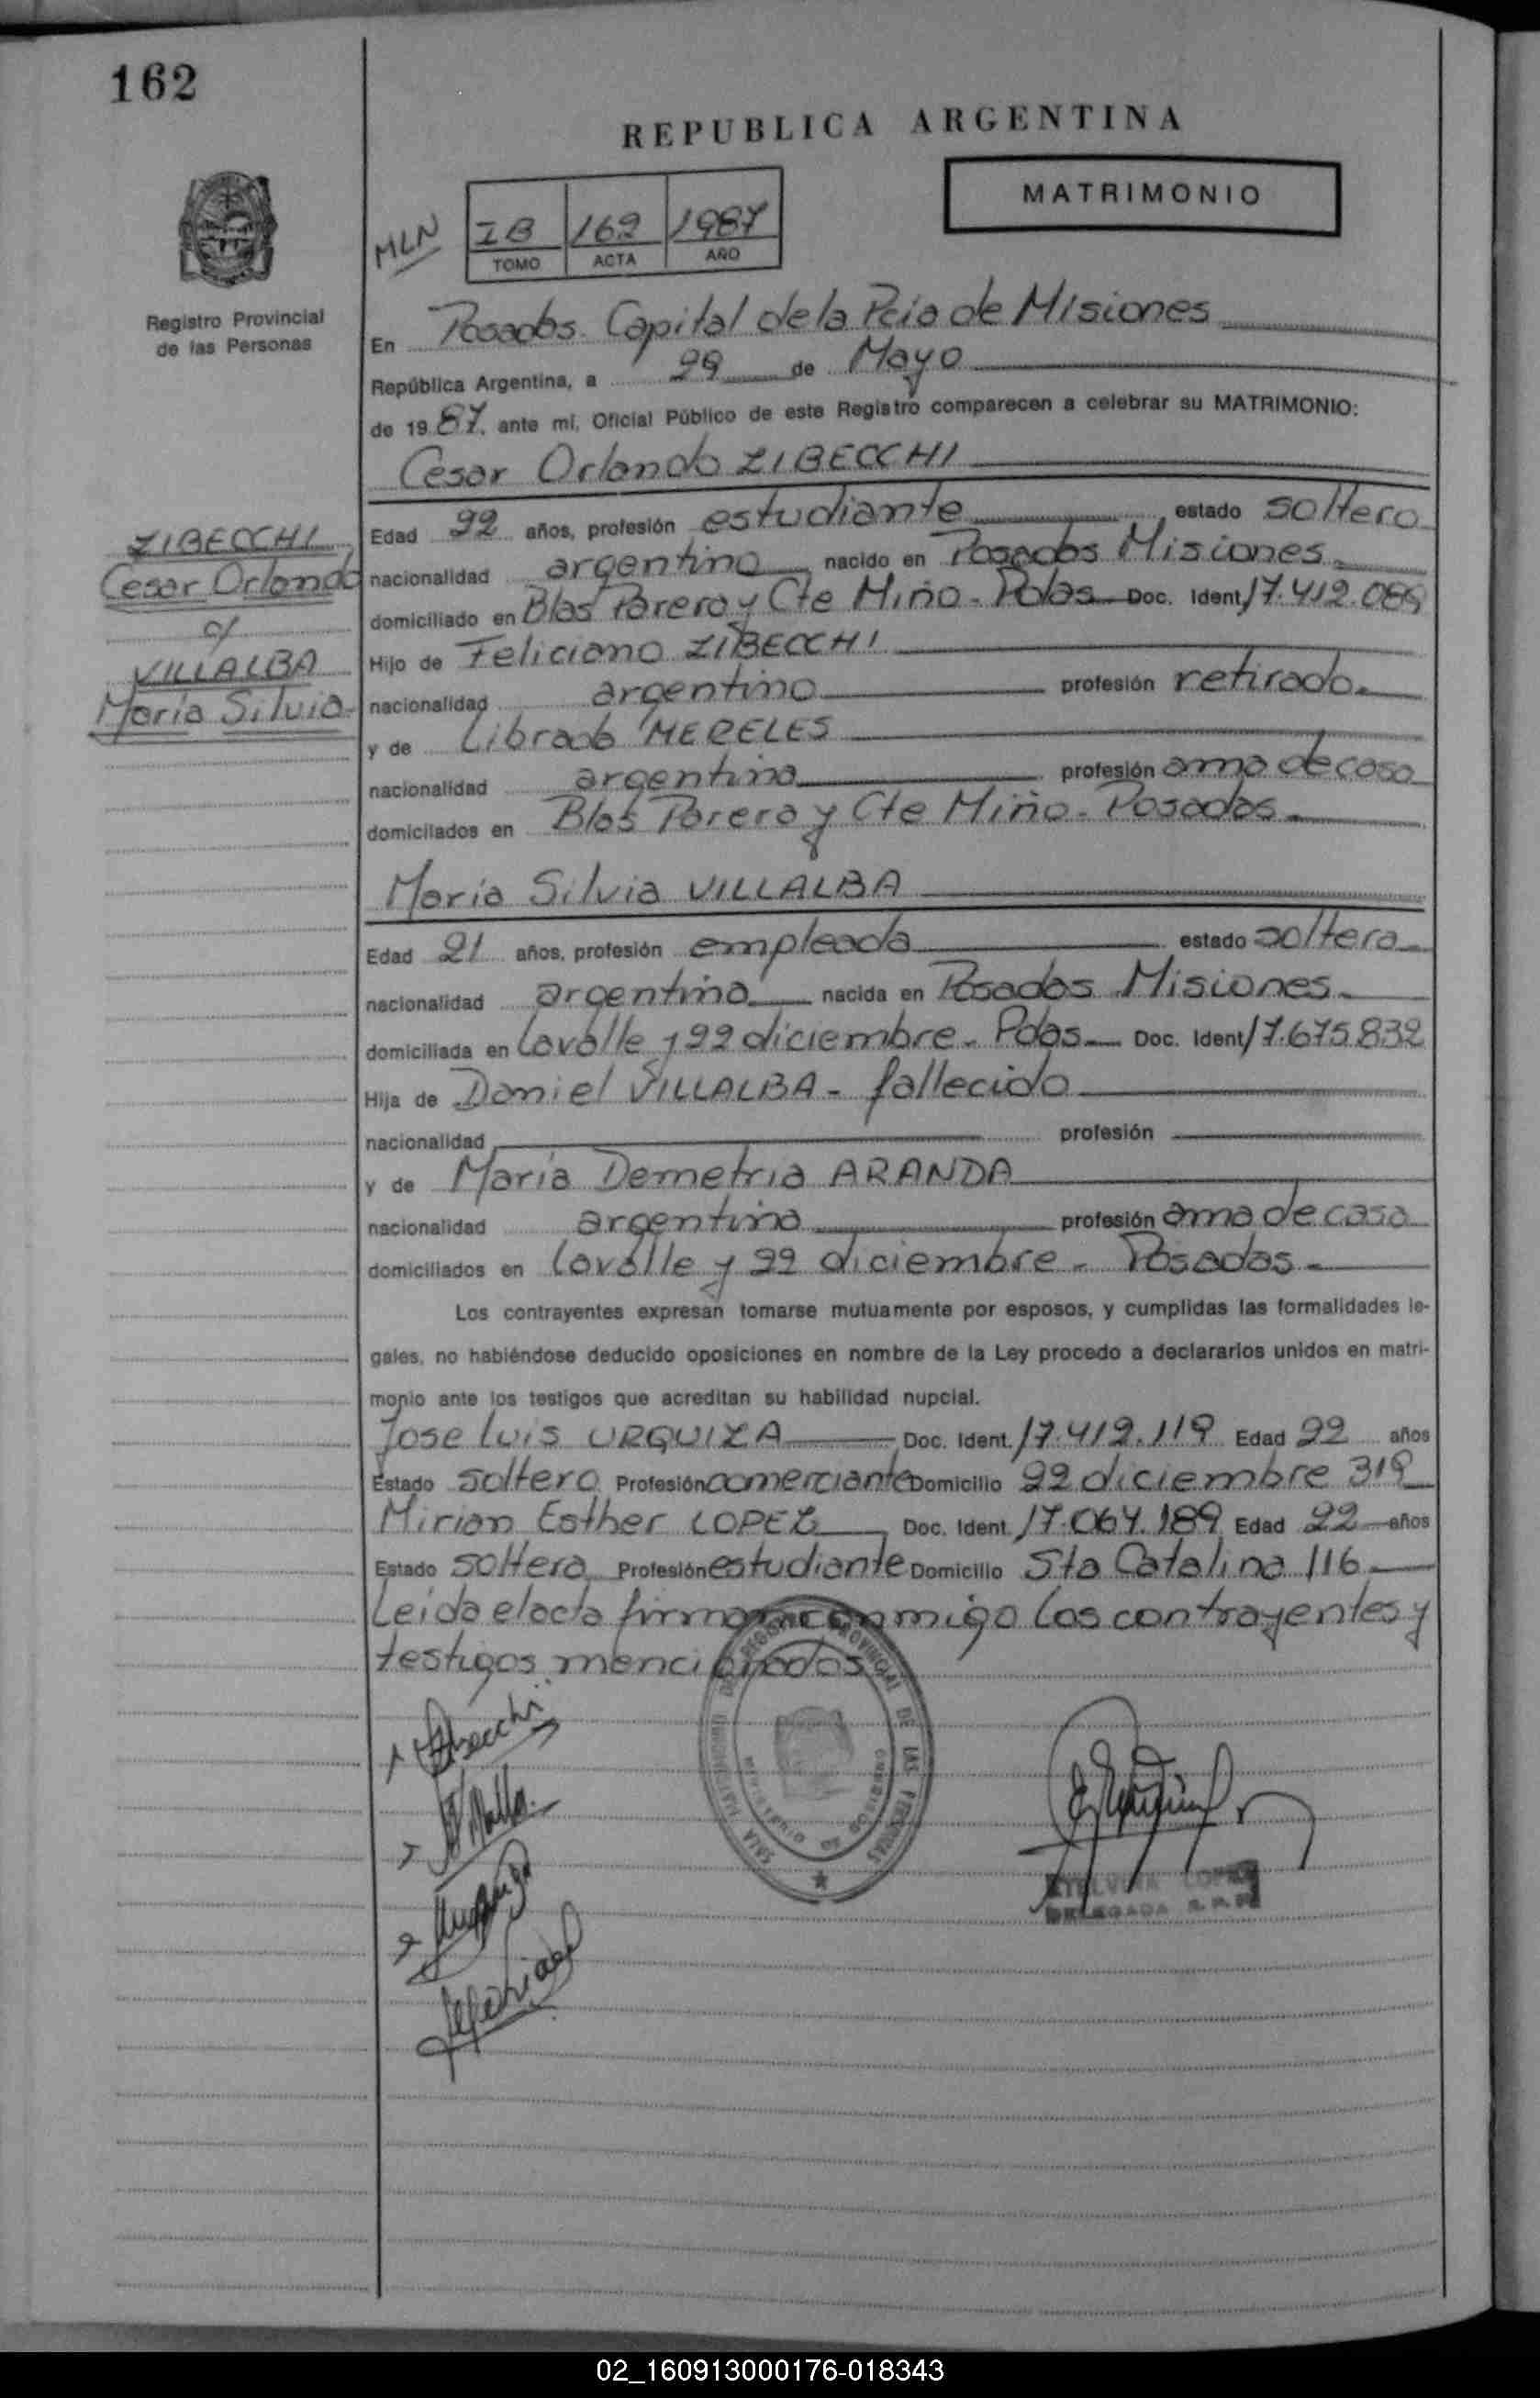 162
REPUBLICA ARGENTINA
MATRIMONIO
MLN
IB 162 1987
TOMO ACTA AÑO
Registro Provincial
de las Personas
En Posadas. Capital de la Pcia de Misiones
República Argentina, a 29 de Mayo
de 1987. ante mí, Oficial Público de este Registro comparecen a celebrar su MATRIMONIO:
Cesar Orlando ZIBECCHI
ZIBECCHI,
Cesar Orlando
c/
VILLALBA
María Silvia
Edad 22 años, profesión estudiante estado soltero
nacionalidad argentino nacido en Posadas Misiones
domiciliado en Blas Parera y Cte Miño - Pdas Doc. Ident. 17.412.089
Hijo de Feliciano ZIBECCHI
nacionalidad argentino profesión retirado
y de Librada MERELES
nacionalidad argentina profesión ama de casa
domiciliados en Blas Parera y Cte Miño - Posadas
María Silvia VILLALBA
Edad 21 años, profesión empleada estado soltera
nacionalidad argentina nacida en Posadas Misiones
domiciliada en Lavalle y 22 diciembre - Pdas Doc. Ident. 17.675.832
Hija de Daniel VILLALBA - fallecido
nacionalidad profesión
y de María Demetria ARANDA
nacionalidad argentina profesión ama de casa
domiciliados en Lavalle y 22 diciembre - Posadas
Los contrayentes expresan tomarse mutuamente por esposos, y cumplidas las formalidades le-
gales, no habiéndose deducido oposiciones en nombre de la Ley procedo a declararlos unidos en matri-
monio ante los testigos que acreditan su habilidad nupcial.
Jose Luis URQUIZA Doc. Ident. 17.412.119 Edad 22 años
Estado soltero Profesión comerciante Domicilio 22 diciembre 319
Mirian Esther LOPEZ Doc. Ident. 17.064.189 Edad 22 años
Estado soltera Profesión estudiante Domicilio Sta Catalina 116
Leida el acta firman conmigo los contrayentes y
testigos mencionados
REGISTRO PROVINCIAL DE LAS PERSONAS
MINISTERIO DE GOBIERNO
Zibecchi
DELEGADA
02_160913000176-018343